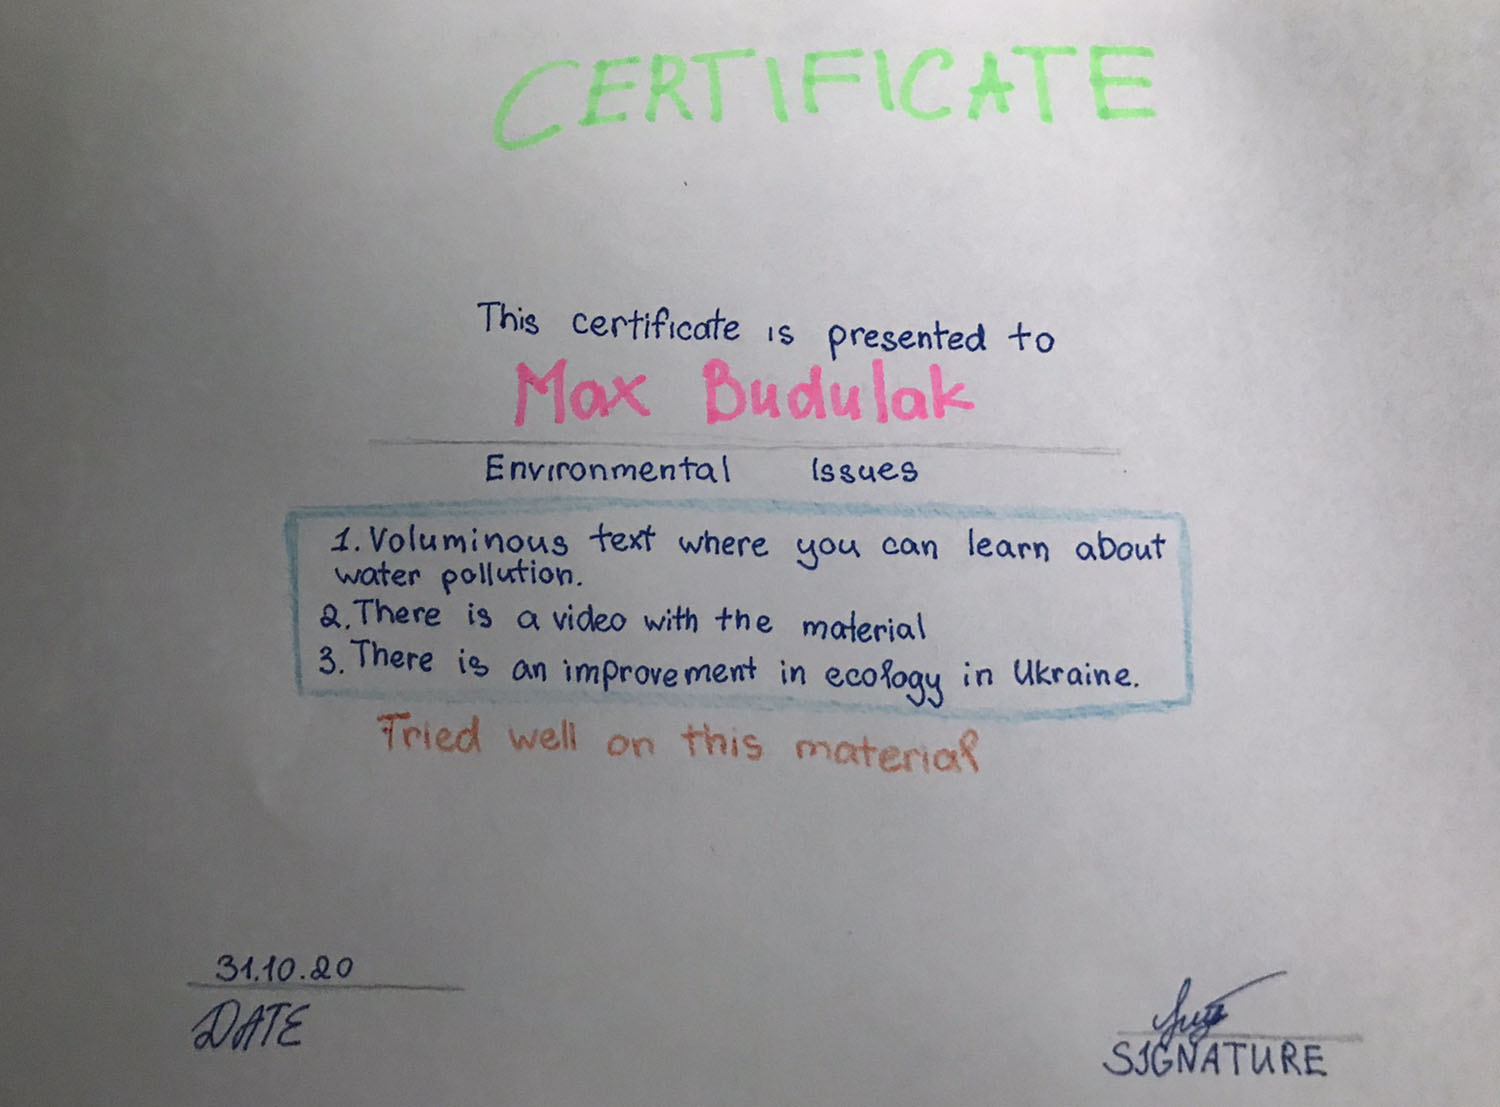 CERTIFICATE
This certificate is presented to
Max Budulak
Environmental Issues
1. Voluminous text where you can learn about
water pollution.
2. There is a video with the material
3. There is an improvement in ecology in Ukraine.
Tried well on this material
31.10.20
DATE
SIGNATURE